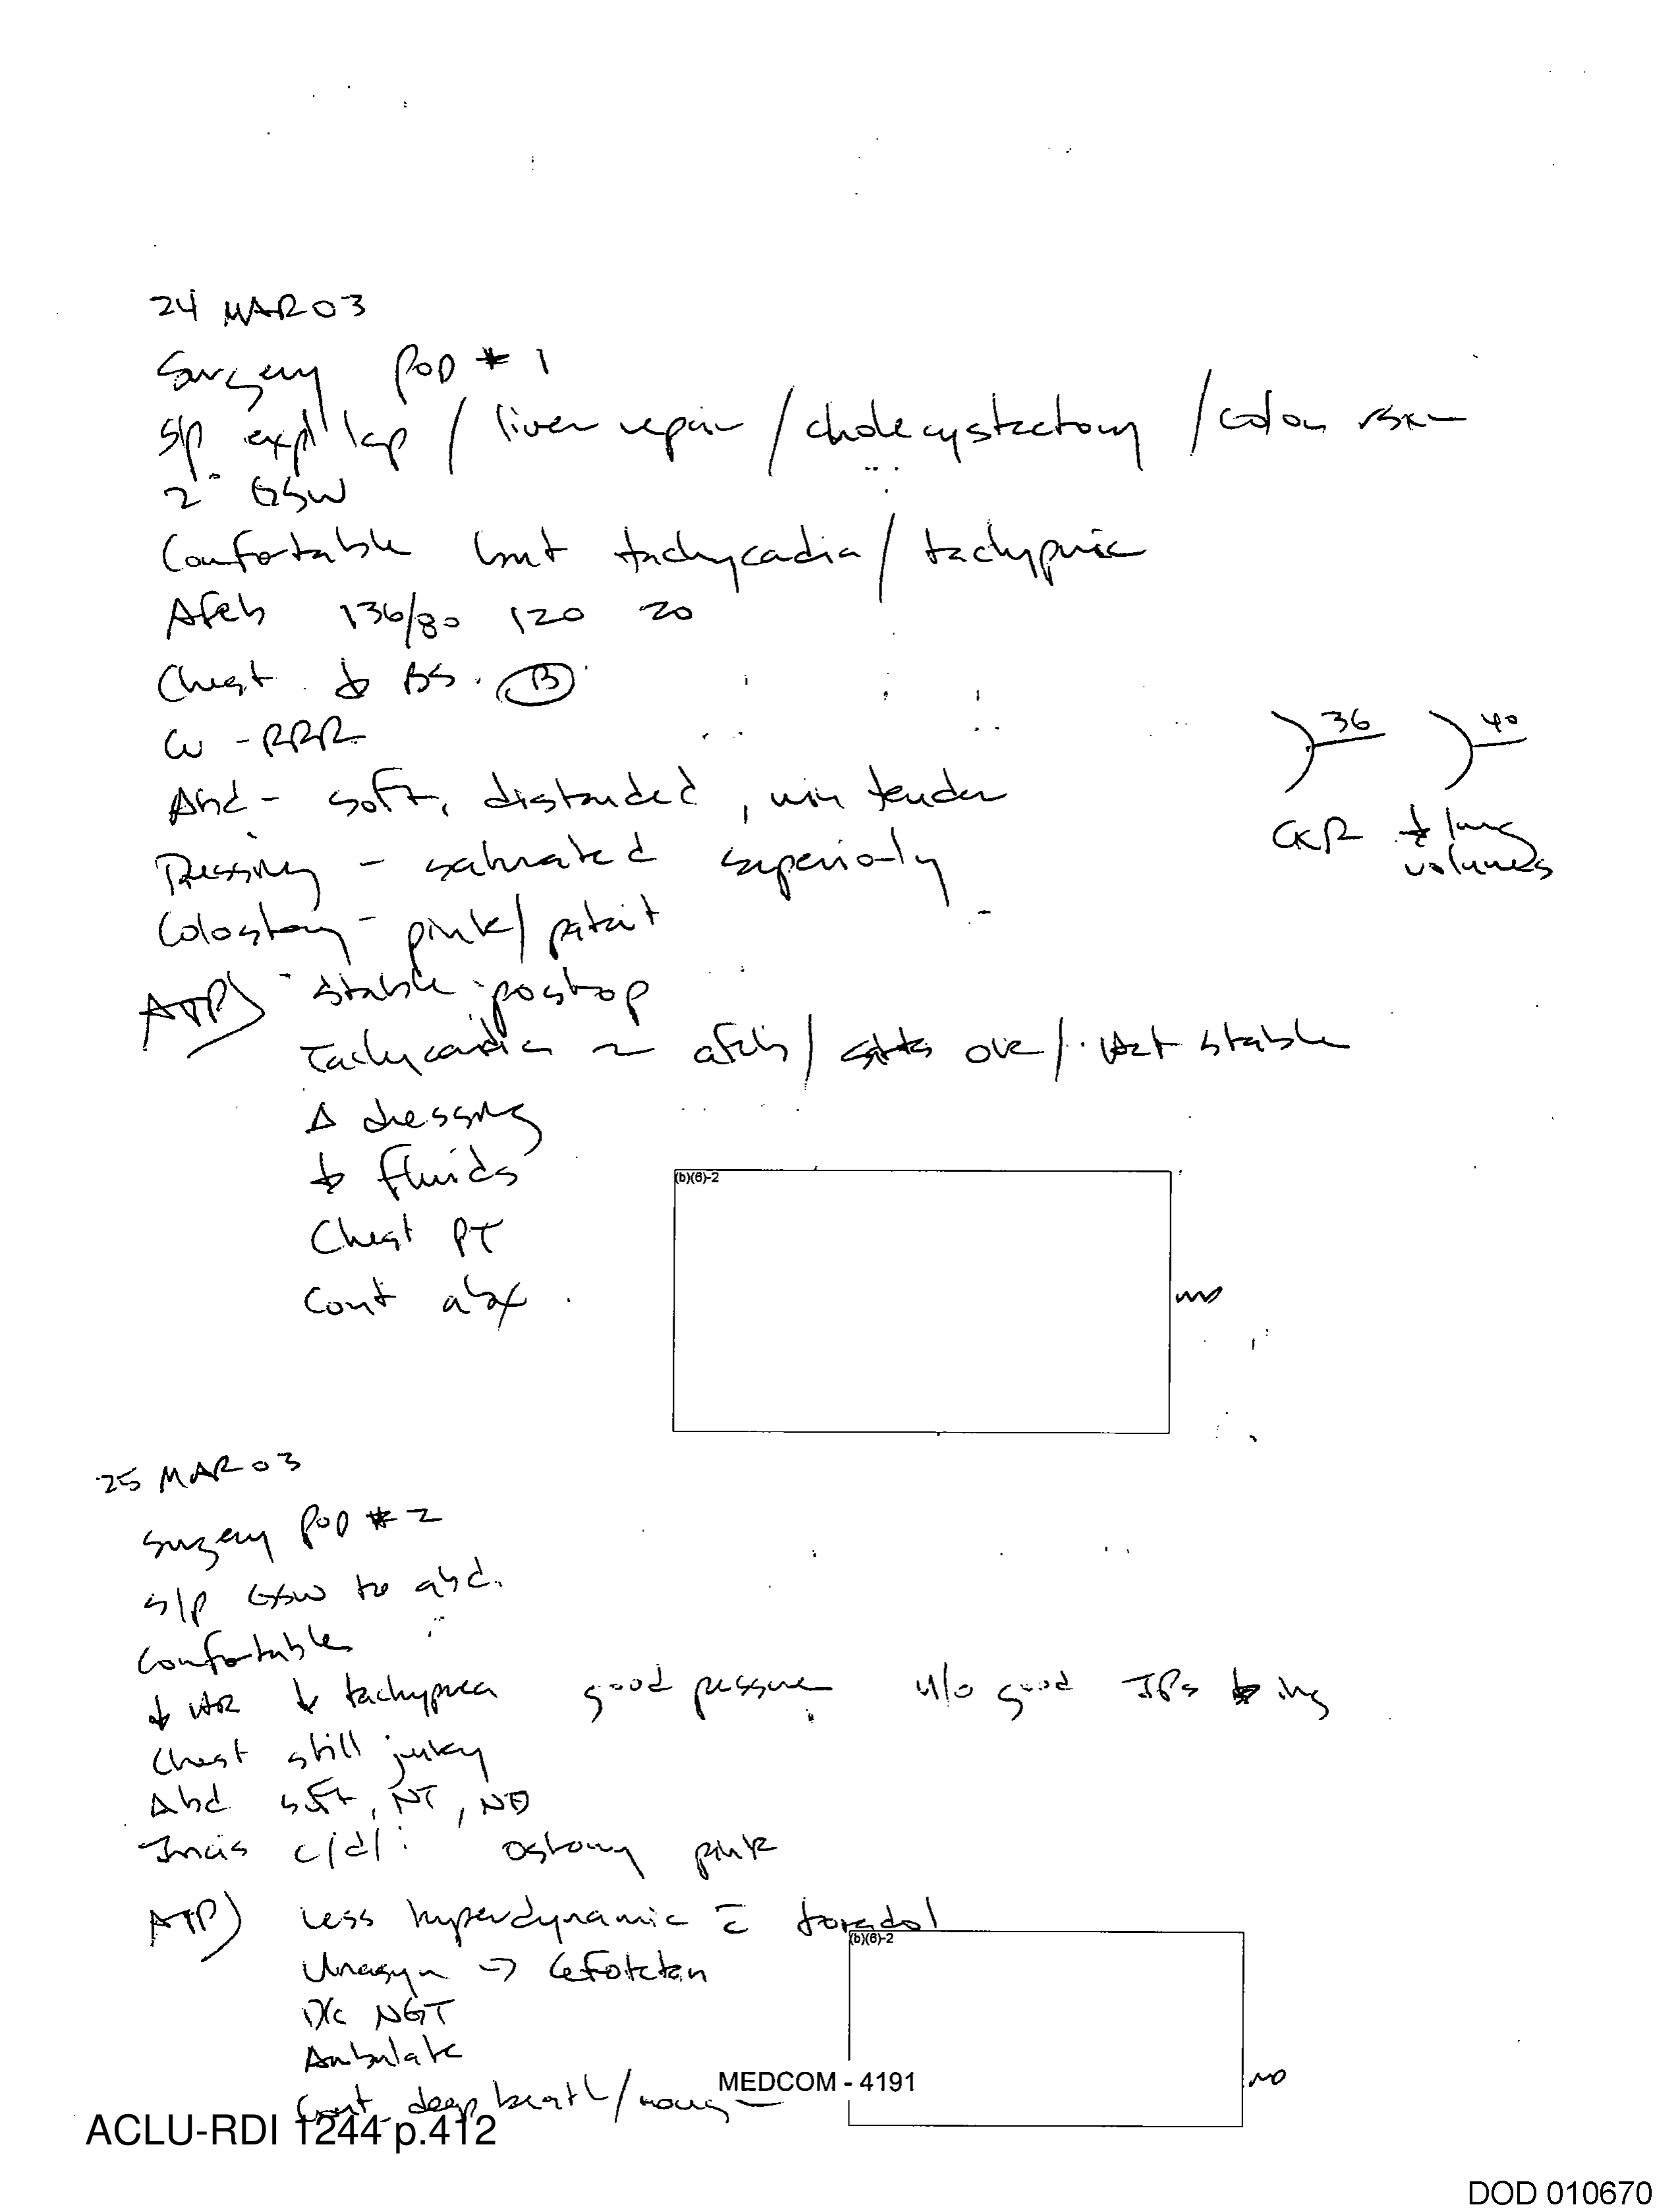 24 MAR 03
Surgery POD # 1
S/p expl lap / liver repair / cholecystectomy / colon rsxn
2° GSW
Comfortable but tachycadia / tachypnic
Afeb 136/80 120 20
Chest ↓ BS. Ⓑ
CV - RRR
36 40
Abd - soft, distended, min tender
CXR ↓ lung volumes
Dressing - saturated superiorly
Colostomy - pink / patent
A+P) Stable postop
Tachycardia ~ afeb / sats ok / Hct stable
Δ dressing
↓ fluids
(b)(6)-2
Chest PT
Cont abx.
MD
25 MAR 03
Surgery POD # 2
S/p GSW to abd.
Comfortable
↓ HR ↓ tachypnea good pressure u/o good JPs
Chest still junky
Abd soft, NT, ND
Incis c/d/i ostomy pink
A+P) Less hyperdynamic c̄ toradol
(b)(6)-2
Unasyn → Cefotetan
D/c NGT
Ambulate
MD
Cont deep breath /
MEDCOM - 4191
ACLU-RDI 1244 p.412
DOD 010670